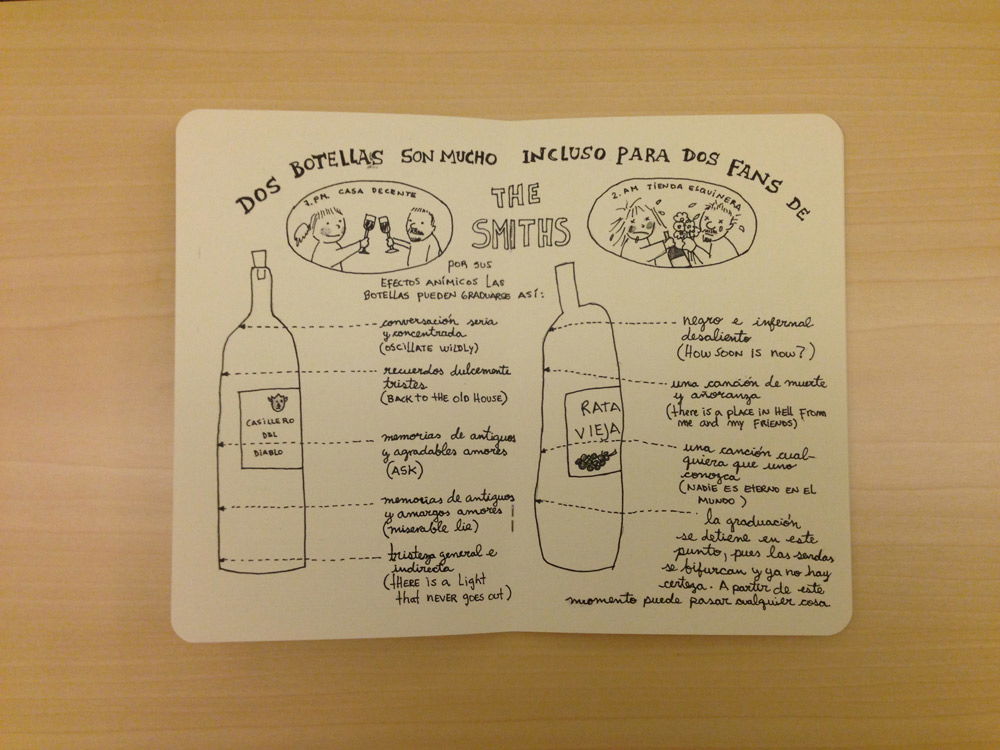 DOS BOTELLAS SON MUCHO INCLUSO PARA DOS FANS DE
THE
SMITHS
7. PM. CASA DECENTE
2. AM TIENDA ESQUINERA
POR SUS
EFECTOS ANÍMICOS LAS
BOTELLAS PUEDEN GRADUARSE ASÍ:
conversación seria
y concentrada
(OSCILLATE WILDLY)
recuerdos dulcemente
tristes
(BACK TO THE OLD HOUSE)
memorias de antiguos
y agradables amores
(ASK)
memorias de antiguos
y amargos amores
(miserable lie)
tristeza general e
indirecta
(tHERE is a Light
that NEVER goes out)
CASILLERO
DEL
DIABLO
negro e infernal
desaliento
(HOW SOON IS NOW?)
una canción de muerte
y añoranza
(there is a PLACE IN HELL FROM
me and my FRIENDS)
una canción cual-
quiera que uno
conozca
(NADIE ES ETERNO EN EL
MUNDO)
la graduación
se detiene en este
punto, pues las sendas
se bifurcan y ya no hay
certeza. A partir de este
momento puede pasar cualquier cosa
RATA
VIEJA